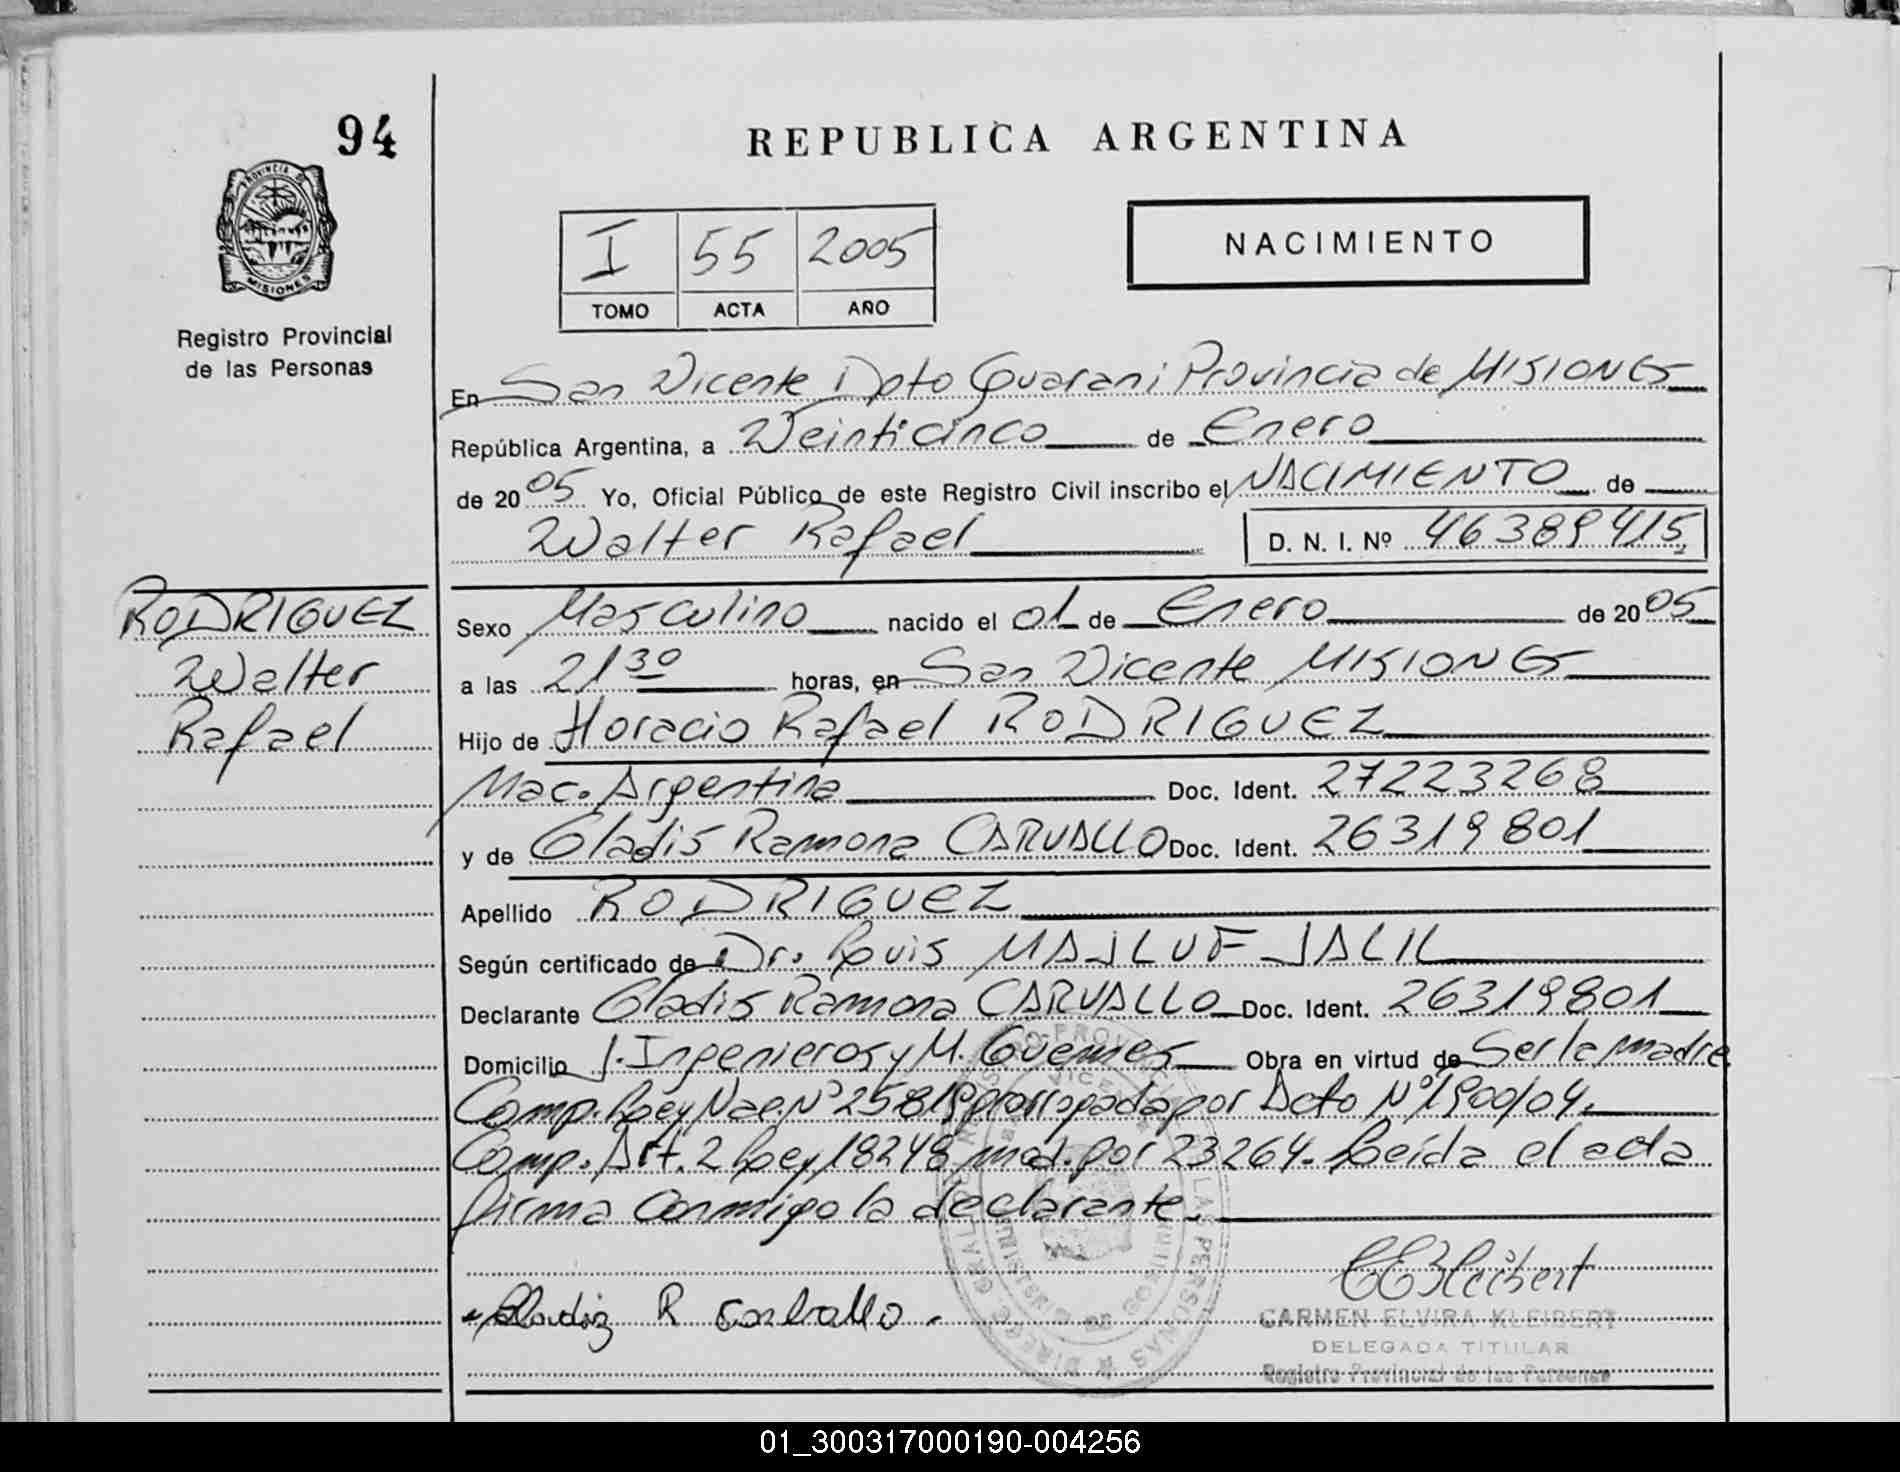 94
REPUBLICA ARGENTINA
PROVINCIA DE
MISIONES
Registro Provincial
de las Personas
I 55 2005
TOMO ACTA AÑO
NACIMIENTO
En San Vicente Dpto Guarani Provincia de MISIONES
República Argentina, a Veinticinco de Enero
de 2005 Yo, Oficial Público de este Registro Civil inscribo el NACIMIENTO de
Walter Rafael D. N. I. Nº 46389415
RODRIGUEZ
Walter
Rafael
Sexo Masculino nacido el 01 de Enero de 2005
a las 21 30 horas, en San Vicente MISIONES
Hijo de Horacio Rafael RODRIGUEZ
Nac. Argentina Doc. Ident. 27223268
y de Gladis Ramona CARVALLO Doc. Ident. 26319801
Apellido RODRIGUEZ
Según certificado de Dr. Luis MAJLUF JALIL
Declarante Gladis Ramona CARVALLO Doc. Ident. 26319801
Domicilio J. Ingenieros y M. Guemes Obra en virtud de Ser la madre
Comp. Ley Nac. Nº 25819 prorrogada por Dcto Nº 1900/04.
Comp. Art. 2 Ley 18248 mod. por 23264. Leída el acta
firma conmigo la declarante.
R carballo.
CEKleibert
CARMEN ELVIRA KLEIBERT
DELEGADA TITULAR
Registro Provincial de las Personas
01_300317000190-004256